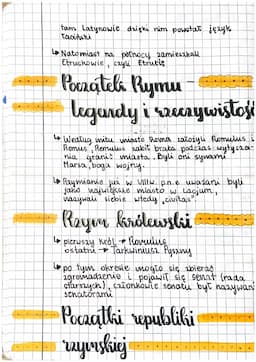 tam Latynowie dzięki nim powstał język
łaciński
↳ Natomiast na północy zamieszkali
Etruskowie, czyli Etruria
Początek Rzymu –
legendy i rzeczywistość
↳ Według mitu miasto Roma założyli Romulus i
Remus, Romulus zabił brata podczas wytycza-
nia granic miasta. Byli oni synami
Marsa, boga wojny.
↳ Rzymianie już w VIIw. p.n.e uważani byli
jako największe miasto w Lacjum,
nazywali siebie wtedy „civitas".
Rzym królewski
↳ pierwszy król → Romulus
ostatni → Tarkwiniusz Pyszny
↳ po tym okresie mogło się zbierać
zgromadzenie i pojawił się senat (rada
starszych), członkowie senatu byli nazywani
senatorami
Początki republiki
rzymskiej